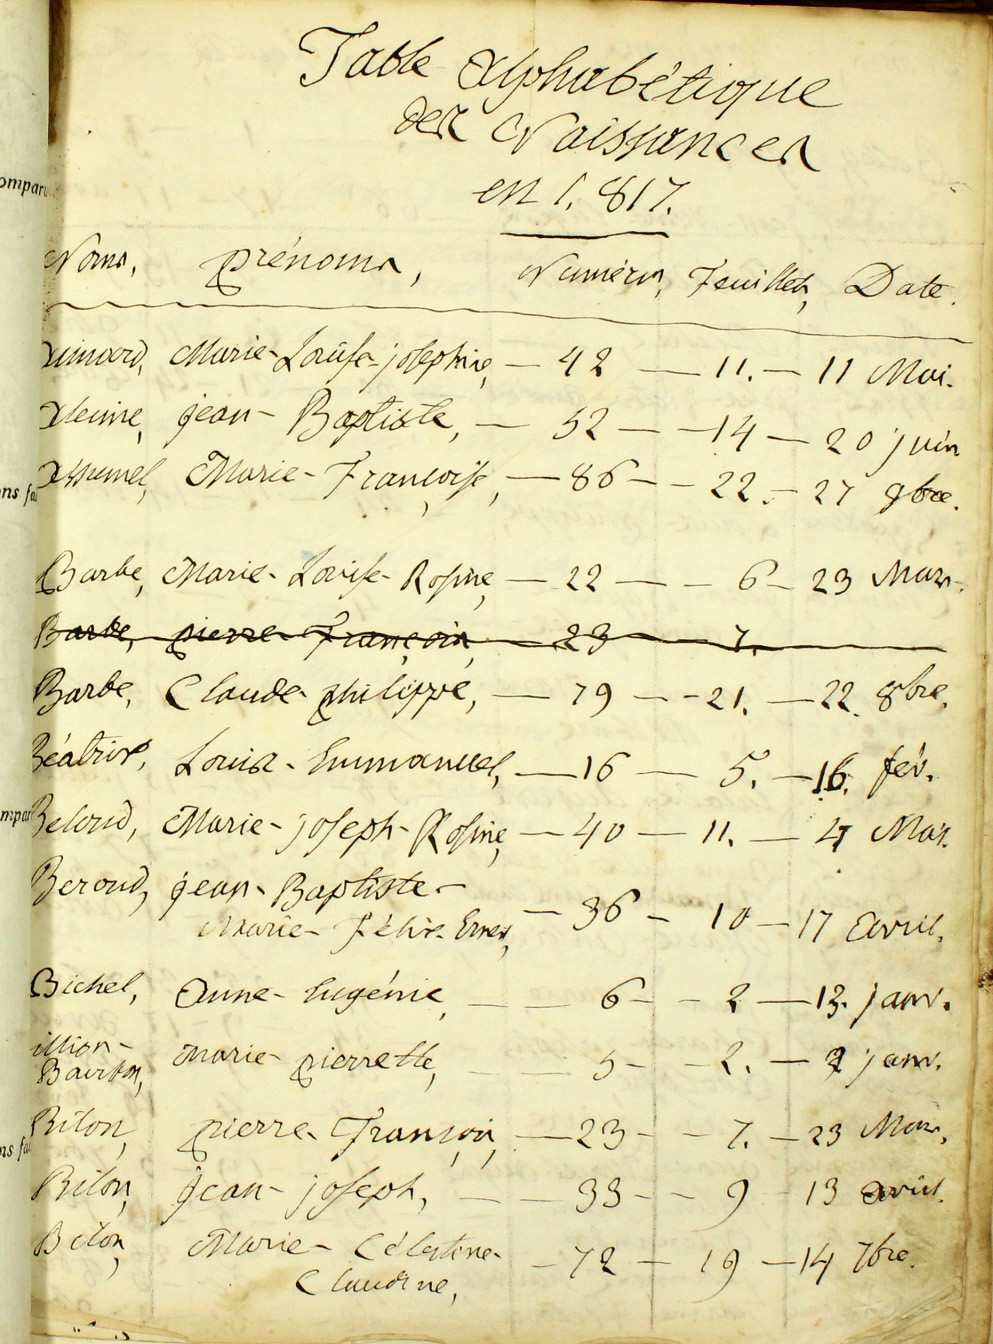 Table Alphabétique
des Naissances
en 1.817.
Noms, prénoms, Numéros, Feuillets, Date.
Marie-Louise-josephine, — 42 — 11. — 11 Mai.
jean-Baptiste, — 52 — 14 — 20 juin
Marie-Françoise, — 86 — 22. — 27 9bre.
Barbe, Marie-Louise-Rosine, — 22 — 6 — 23 Mars.
Barbe, pierre-François, 23 7.
Barbe, Claude-philippe, — 79 — 21. — 22. 8bre.
Béatrix, Louis-Emmanuel, — 16 — 5. — 16. fév.
Marie-joseph-Rosine, — 40 — 11. — 4 Mai.
Beroud, jean-Baptiste-
Marie-Félix- — 36 — 10 — 17 avril.
Bichel, Anne-Eugénie, — 6 — 2 — 13. janv.
illion-
Marie-pierrette, — 5 — 2. — 2 janv.
Biton, pierre-François, — 23 — 7. — 23 Mars.
Biton, jean-joseph, — 33 — 9 13 avril.
Biton, Marie-Célestine-
Claudine, — 72 — 19 — 14 7bre.
ompar
ons fa
mpar
ns fa